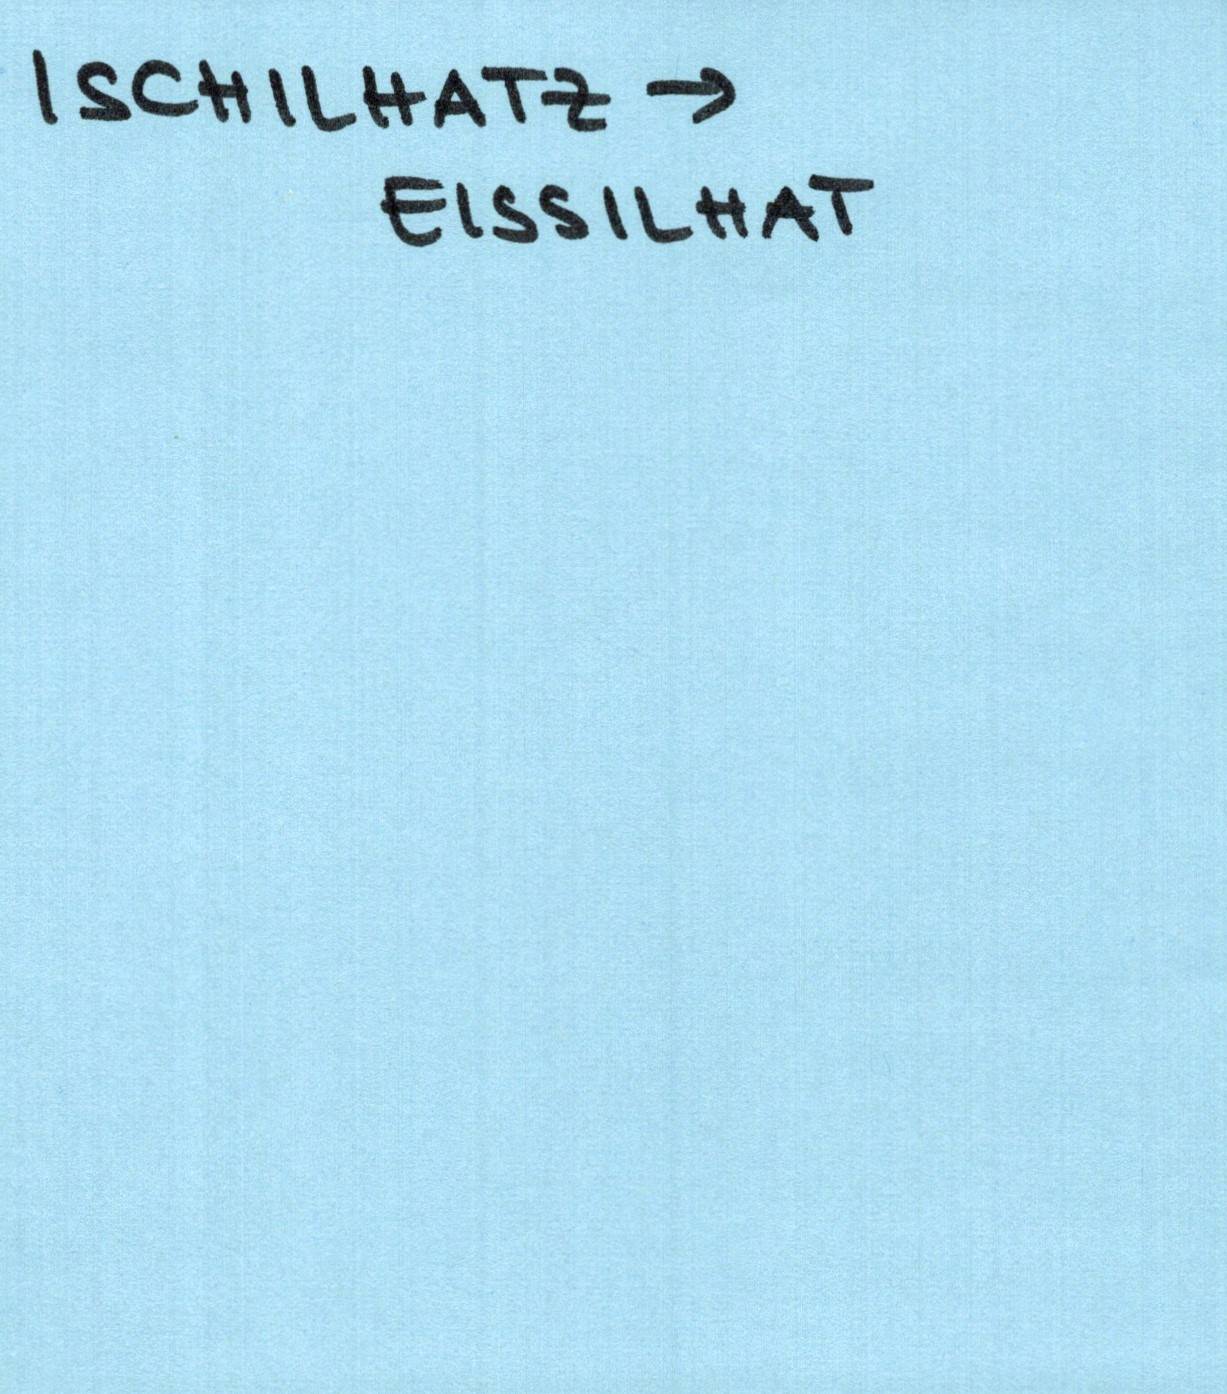 ISCHILHATZ →
EISSILHAT